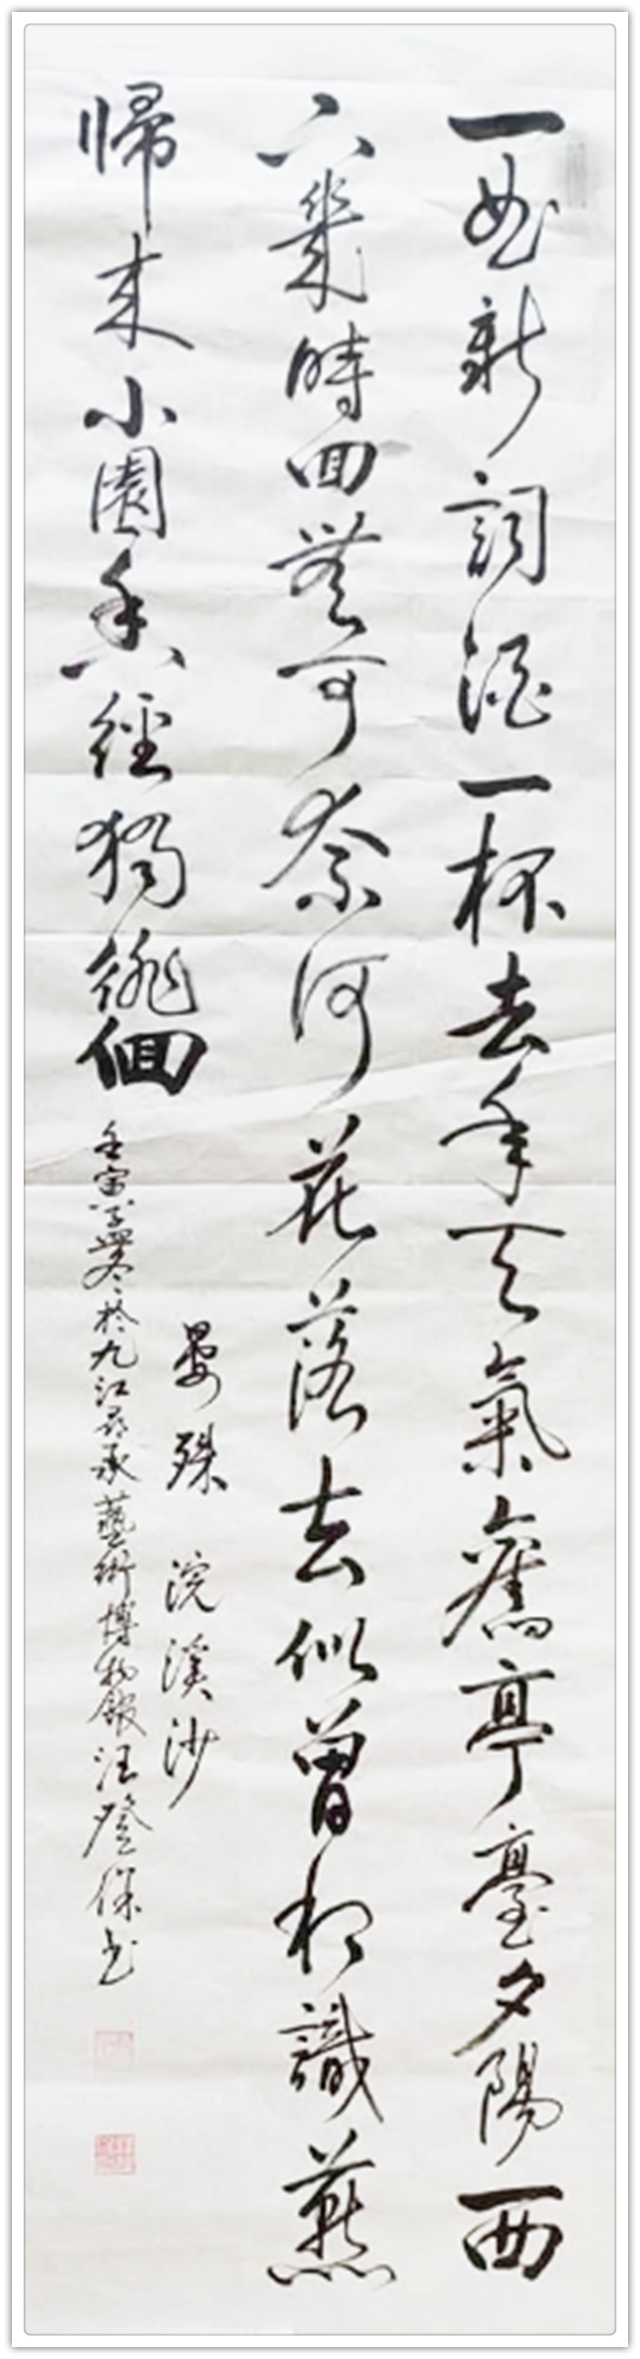 一曲新詞酒一杯去年天氣舊亭臺夕陽西
下幾時回無可奈何花落去似曾相識燕
帰来小園香徑獨徘徊
晏殊 浣溪沙
壬寅孟冬於九江尋承藝術博物館汪登保书